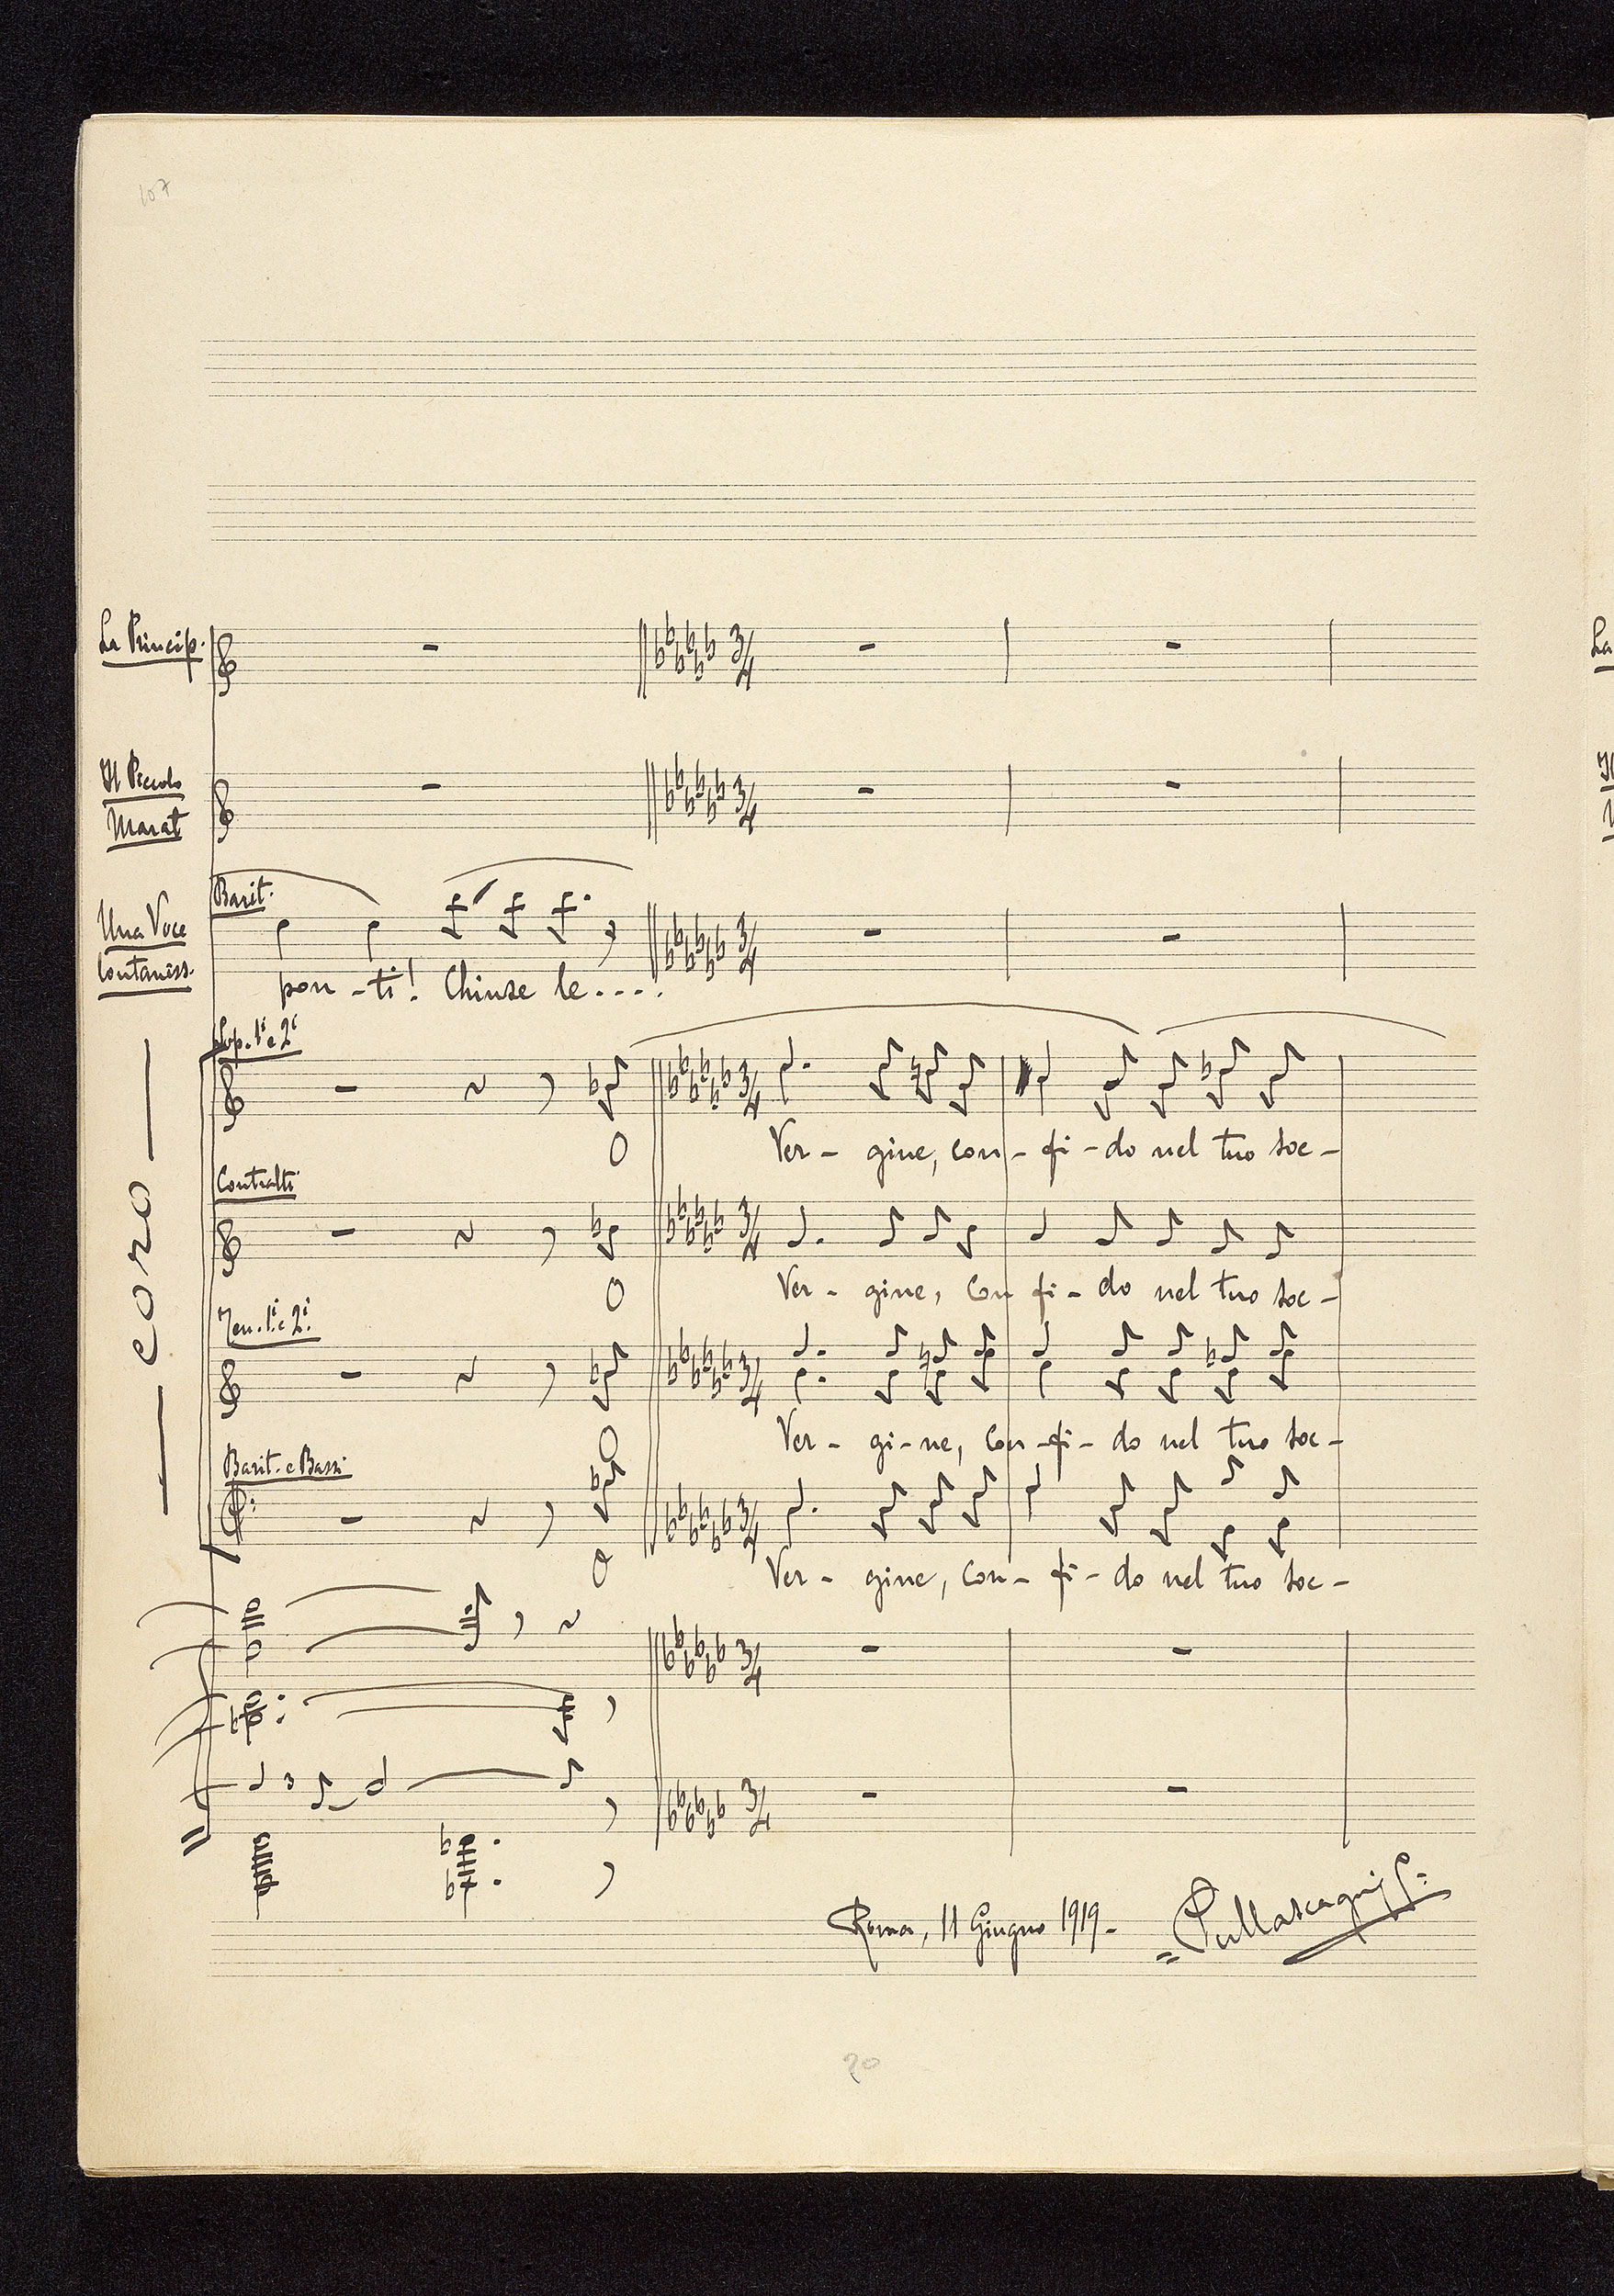 107
La Princip.
Il Piccolo
Marat
Barit.
Una Voce
lontaniss.
pon - ti! Chiuse le....
Sop. 1i e 2i
3/4
O Ver - gine, con - fi - do nel tuo soc -
Contralti
3/4
O Ver - gine, con fi - do nel tuo soc -
coro
Ten. 1i e 2i
3/4
O Ver - gi - ne, con - fi - do nel tuo soc -
Barit. e Bassi
3/4
O Ver - gine, con - fi - do nel tuo soc -
3
Roma, 11 Giugno 1919 -
=PMascagni=
20
La